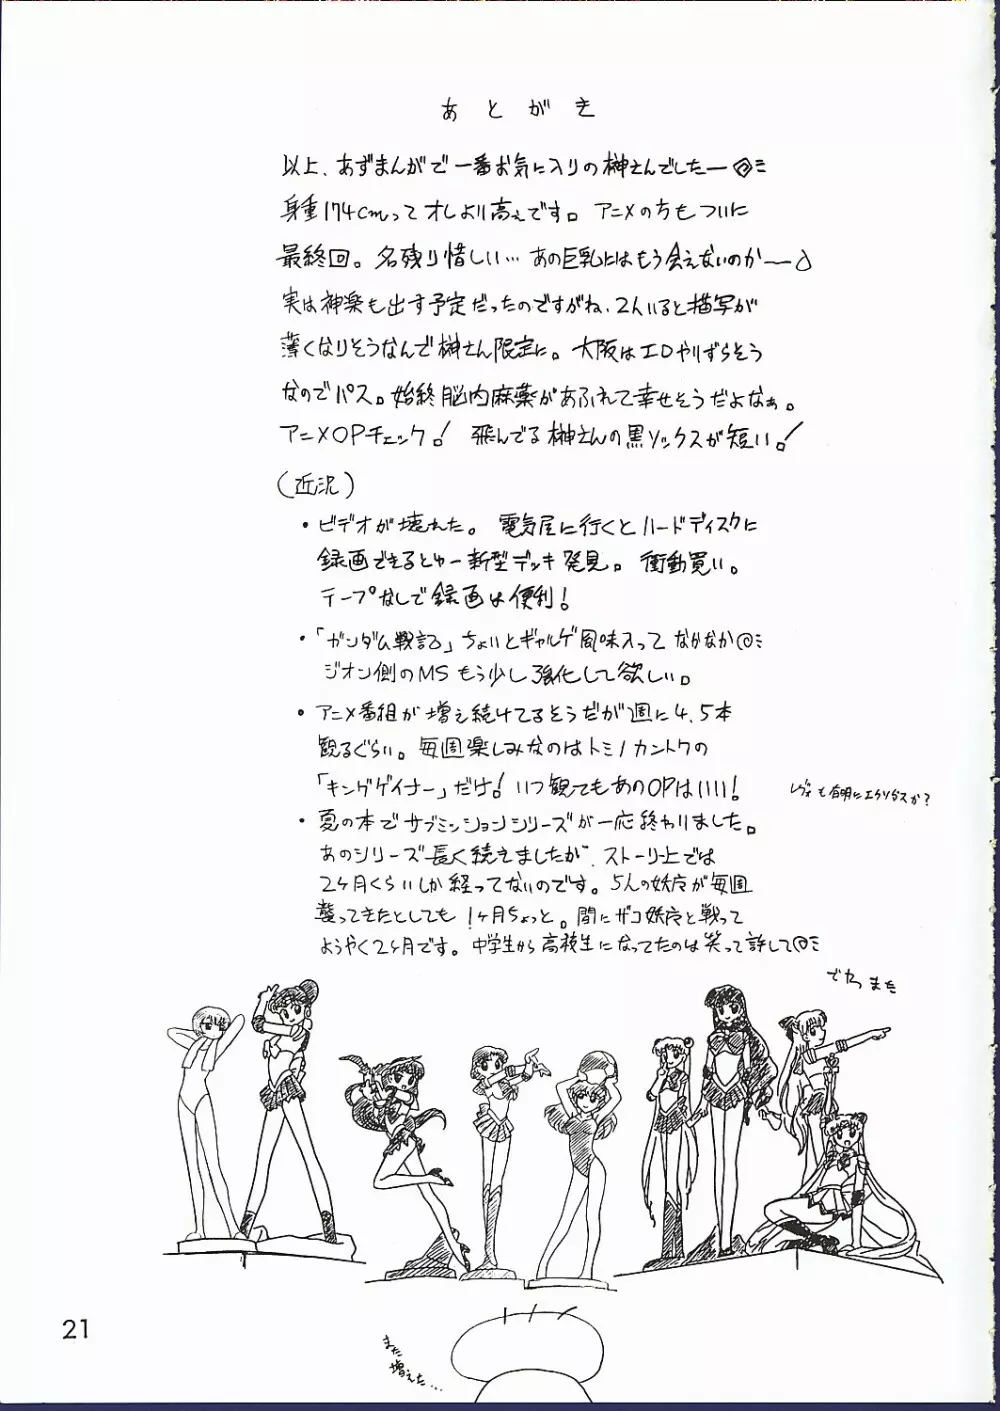 あとがき
以上、あずまんがで一番お気に入りの榊さんでしたー
身重174cmってオレより高ぇです。アニメの方もついに
最終回。名残り惜しい…あの巨乳にはもう会えないのかー
実は神楽も出す予定だったのですがね、2人いると描写が
薄くなりそうなんで榊さん限定に。大阪はエロやりずらそう
なのでパス。始終脳内麻薬があふれて幸せそうだよなぁ。
アニメOPチェック! 飛んでる榊さんの黒ソックスが短い!
(近況)
・ビデオが壊れた。電気屋に行くとハードディスクに
録画できるとゆー新型デッキ発見。衝動買い。
テープなしで録画は便利!
・「ガンダム戦記」ちょいとギャルゲ風味入ってなかなか
ジオン側のMSもう少し強化して欲しい。
・アニメ番組が増え続けてるそうだが週に4,5本
観るぐらい。毎週楽しみなのはトミノカントクの
「キングゲイナー」だけ!いつ観てもあのOPはいい!
も有明にエクソダスか?
・夏の本でサブミッションシリーズが一応終わりました。
あのシリーズ長く続えましたが、ストーリ上では
2ヶ月くらいしか経ってないのです。5人の妖魔が毎週
襲ってきたとしても1ヶ月ちょっと。間にザコ妖魔と戦って
ようやく2ヶ月です。中学生から高校生になってたのは笑って許して
でわっまた
また
増えた…
21